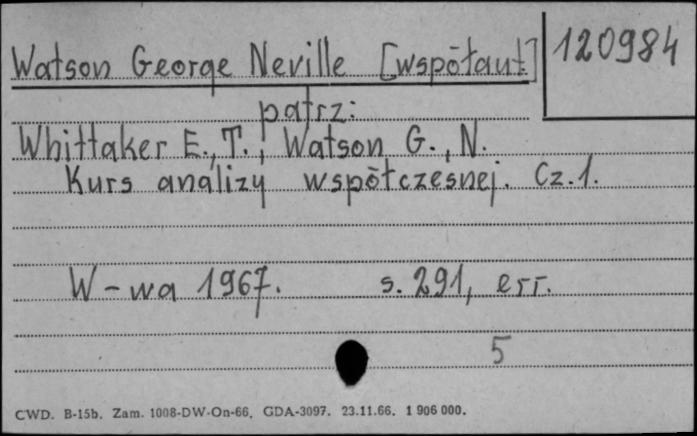 Watson George Neville [współaut.] 120984
patrz:
Whittaker E., T., Watson G., N.
Kurs analizy współczesnej. Cz.1.
W-wa 1967. s. 291, err.
5
CWD. B-15b. Zam. 1008-DW-On-66, GDA-3097. 23.11.66. 1 906 000.